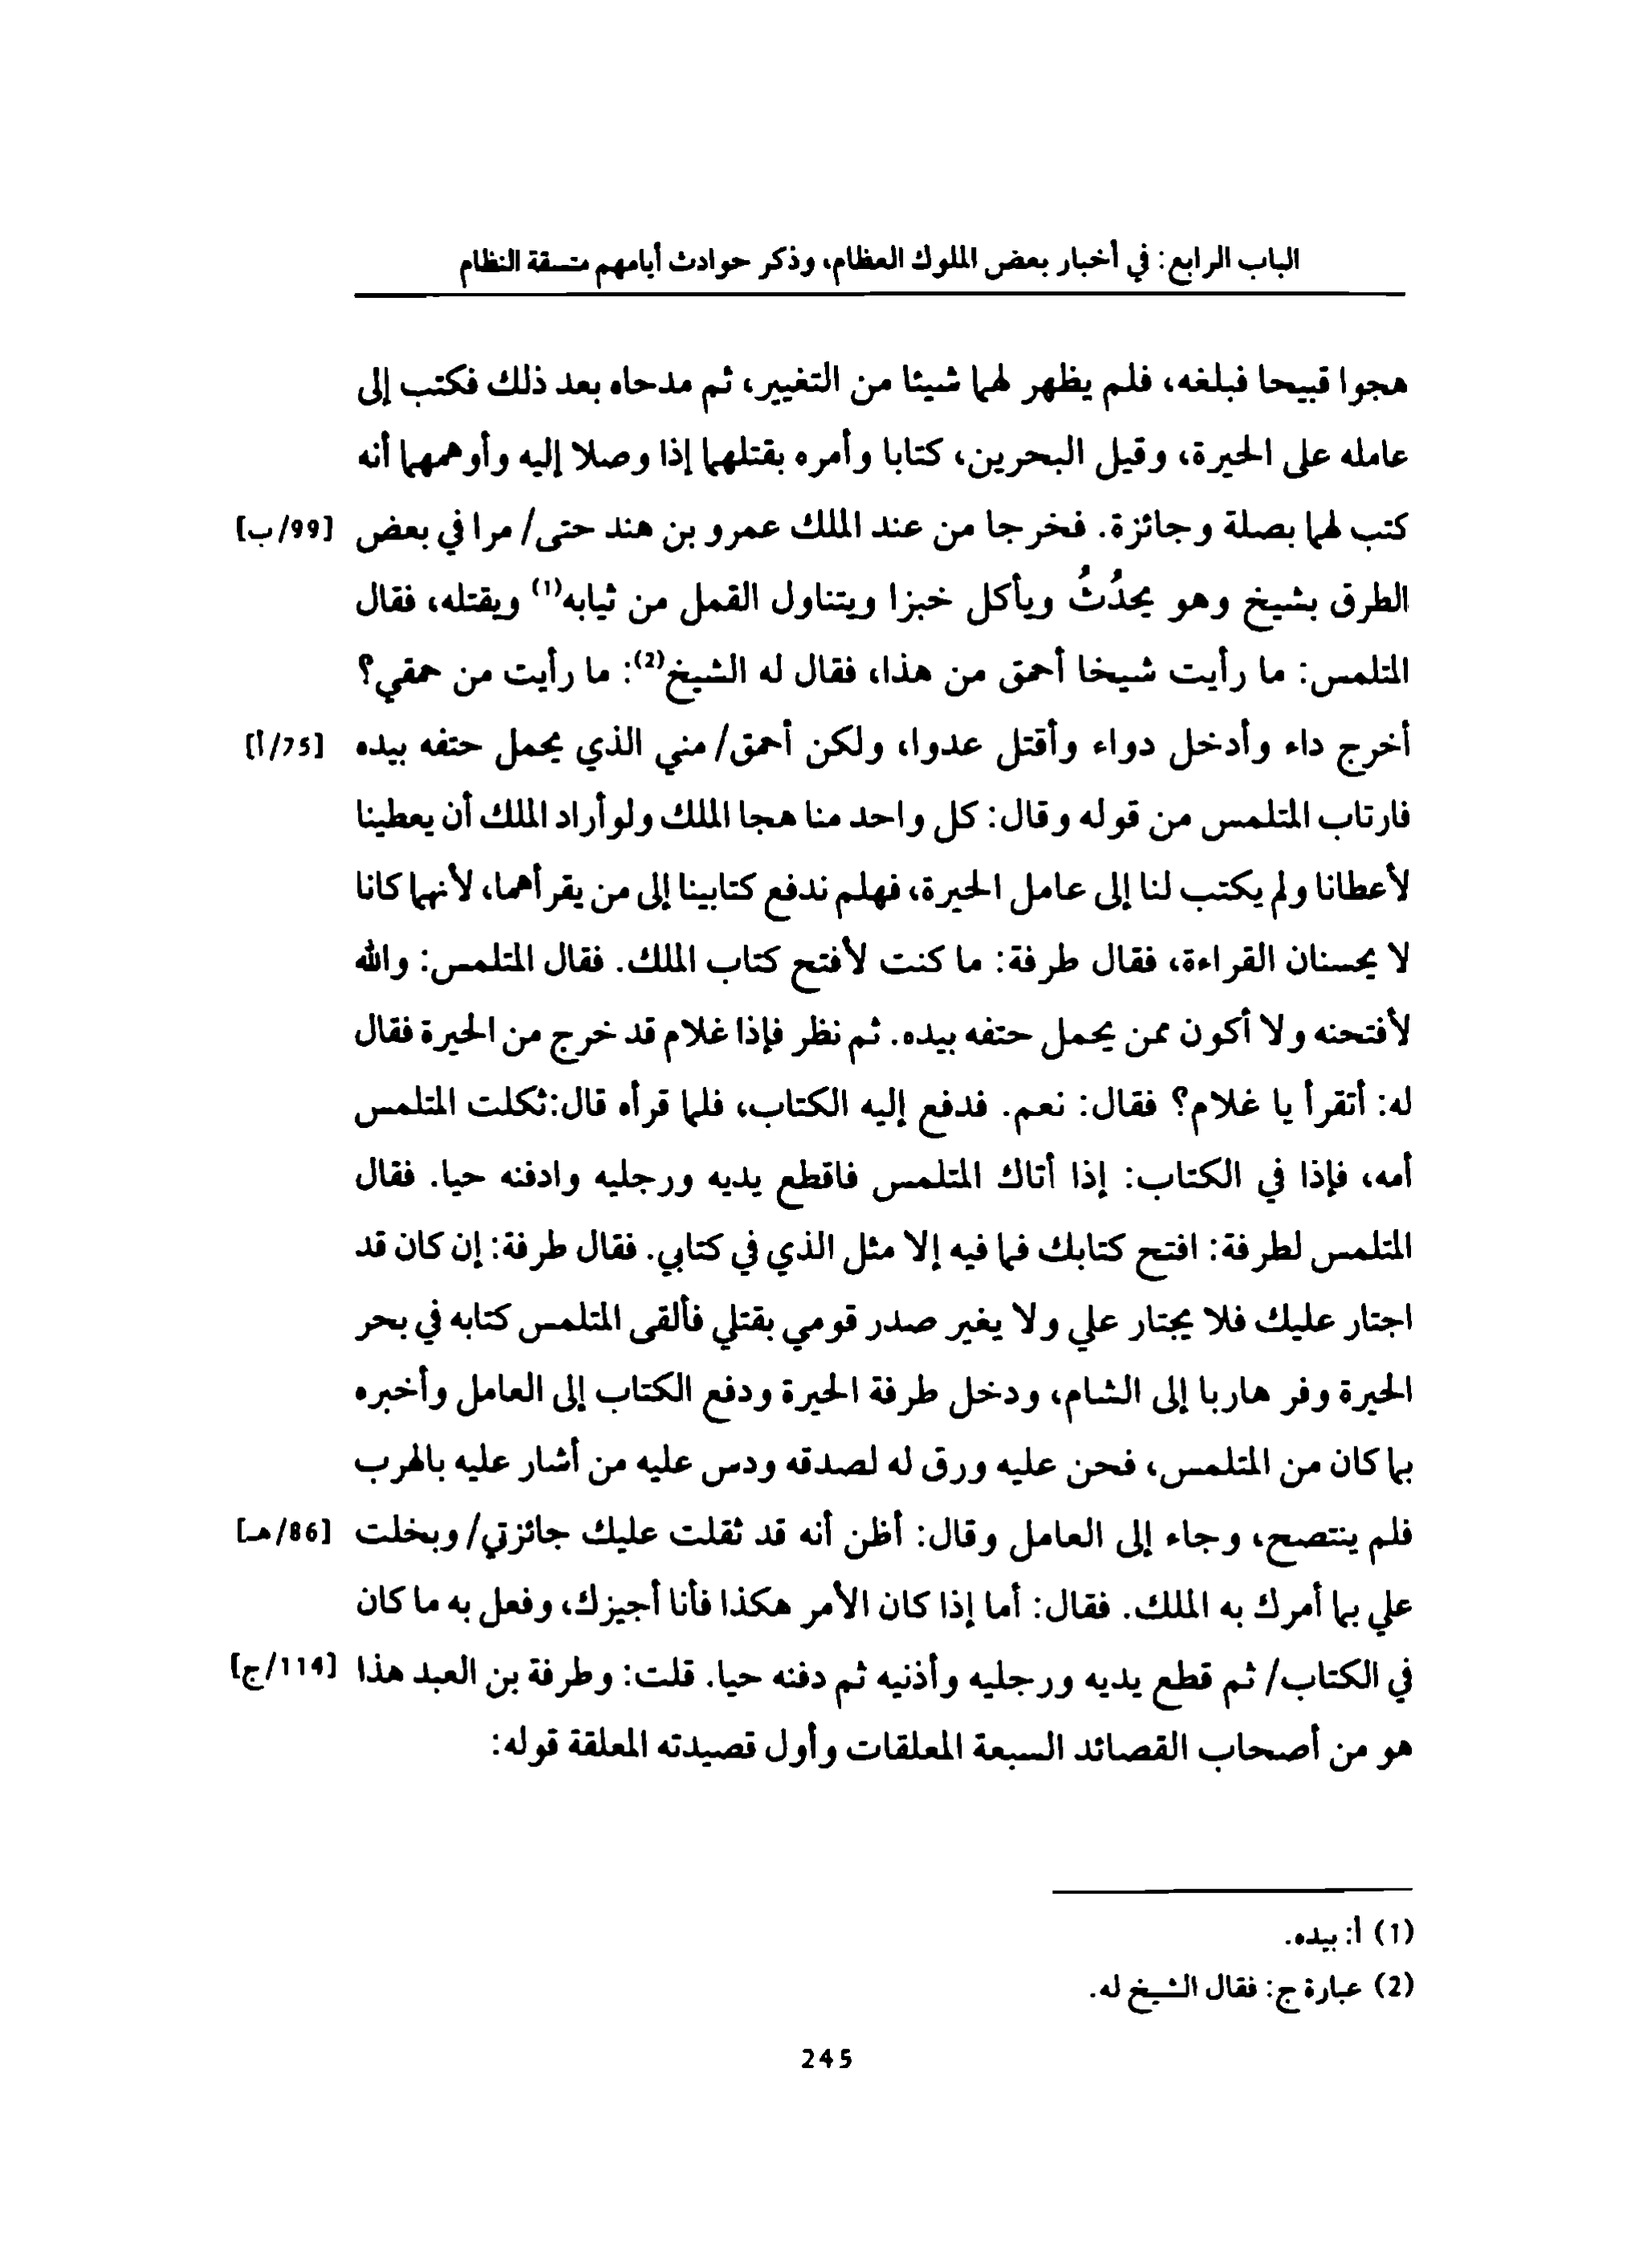 الباب الرابع: في أخبار بعض الملوك العظام، وذكر حوادث أيامهم متسقة النظام
هجوا قبيحا فبلغه، فلم يظهر لهما شيئا من التغيير، ثم مدحاه بعد ذلك فكتب إلى
عامله على الحيرة، وقيل البحرين، كتابا وأمره بقتلهما إذا وصلا إليه وأوهمهما أنه
كتب لهما بصلة وجائزة. فخرجا من عند الملك عمرو بن هند حتى/ مرا في بعض [99/ب]
الطرق بشيخ وهو يحدُثُ ويأكل خبزا ويتناول القمل من ثيابه(1) ويقتله، فقال
المتلمس: ما رأيت شيخا أحمق من هذا، فقال له الشيخ(2): ما رأيت من حمقي؟
أخرج داء وأدخل دواء وأقتل عدوا، ولكن أحمق/ مني الذي يحمل حتفه بيده [75/أ]
فارتاب المتلمس من قوله وقال: كل واحد منا هجا الملك ولو أراد الملك أن يعطينا
لأعطانا ولم يكتب لنا إلى عامل الحيرة، فهلم ندفع كتابينا إلى من يقرأهما، لأنهما كانا
لا يحسنان القراءة، فقال طرفة: ما كنت لأفتح كتاب الملك. فقال المتلمس: والله
لأفتحنه ولا أكون ممن يحمل حتفه بيده. ثم نظر فإذا غلام قد خرج من الحيرة فقال
له: أتقرأ يا غلام؟ فقال: نعم. فدفع إليه الكتاب، فلما قرأه قال:ثكلت المتلمس
أمه، فإذا في الكتاب: إذا أتاك المتلمس فاقطع يديه ورجليه وادفنه حيا. فقال
المتلمس لطرفة: افتح كتابك فما فيه إلا مثل الذي في كتابي. فقال طرفة: إن كان قد
اجتار عليك فلا يجتار علي ولا يغير صدر قومي بقتلي فألقى المتلمس كتابه في بحر
الحيرة وفر هاربا إلى الشام، ودخل طرفة الحيرة ودفع الكتاب إلى العامل وأخبره
بما كان من المتلمس، فحن عليه ورق له لصدقه ودس عليه من أشار عليه بالهرب
فلم ينتصح، وجاء إلى العامل وقال: أظن أنه قد ثقلت عليك جائزتي/ وبخلت [86/هـ]
علي بما أمرك به الملك. فقال: أما إذا كان الأمر هكذا فأنا أجيزك، وفعل به ما كان
في الكتاب/ ثم قطع يديه ورجليه وأذنيه ثم دفنه حيا. قلت: وطرفة بن العبد هذا [114/ج]
هو من أصحاب القصائد السبعة المعلقات وأول قصيدته المعلقة قوله:
(1) أ: بيده.
(2) عبارة ج: فقال الشيخ له.
245